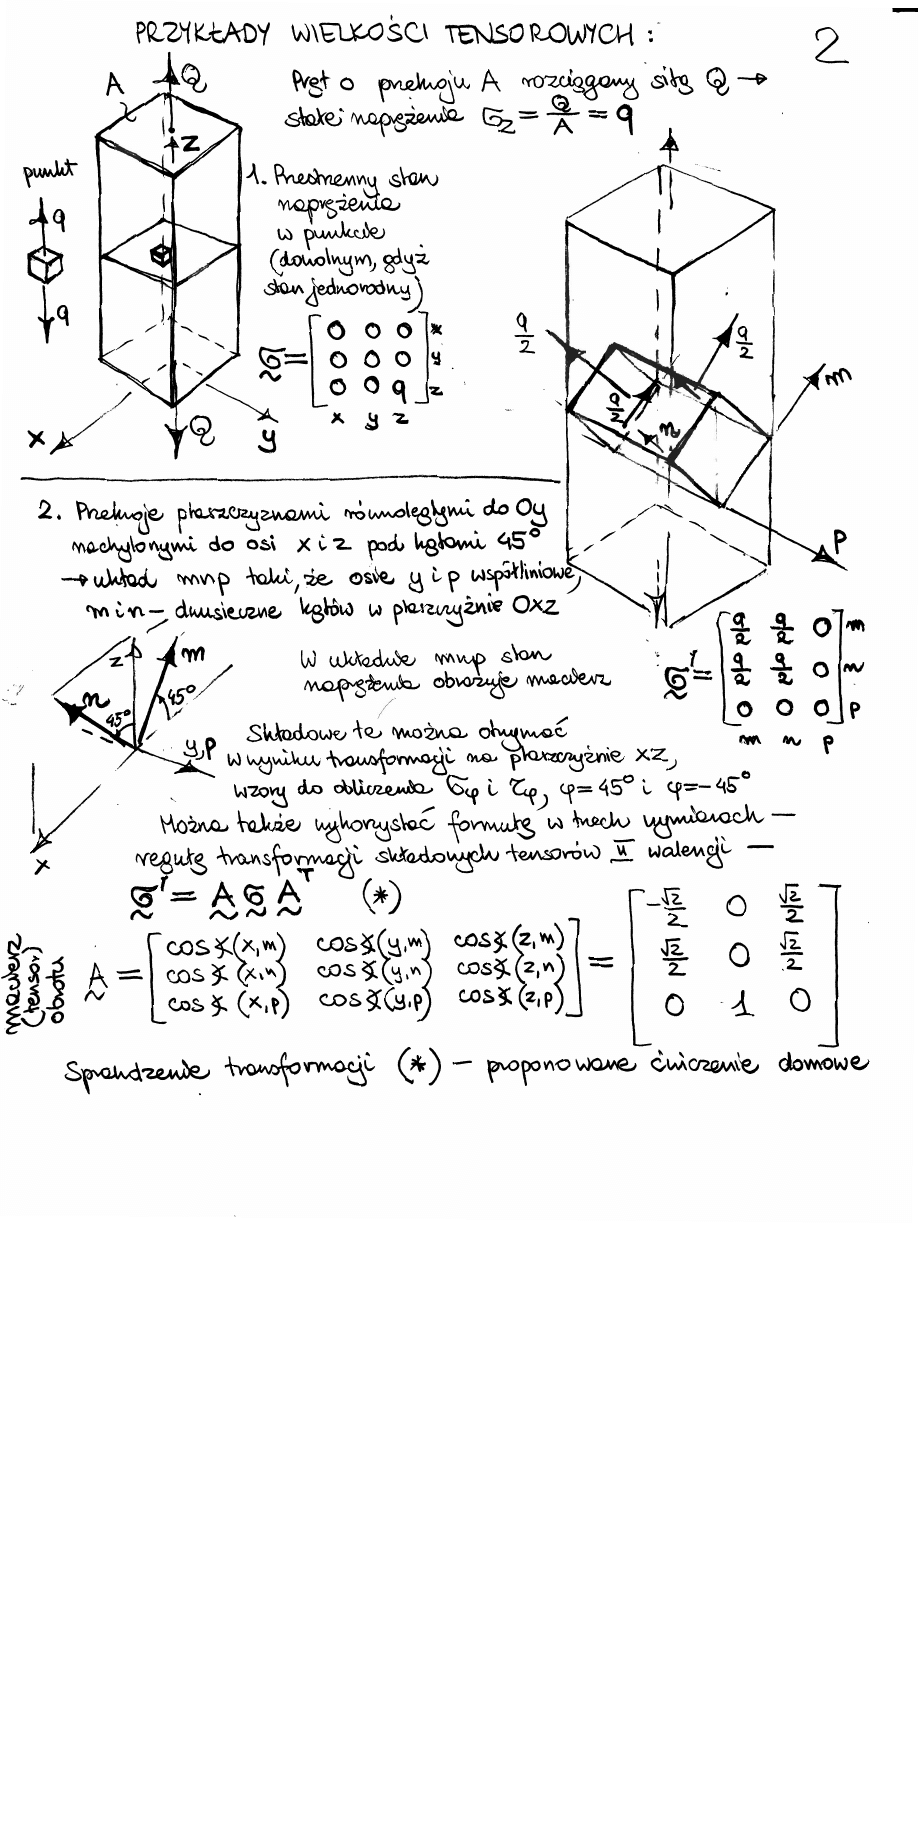 PRZYKŁADY WIELKOŚCI TENSOROWYCH :
2
A
Q
Z
Pręt o przekroju A rozciągany siłą Q →
stałe naprężenia σz = Q/A = q
punkt
q
q
1. Przestrzenny stan
naprężenia
w punkcie
(dowolnym, gdyż
stan jednorodny)
σ = [ 0 0 0 ] x
[ 0 0 0 ] y
[ 0 0 q ] z
x y z
x
Q
y
q/2
q/2
q/2
m
n
p
2. Przekroje płaszczyznami równoległymi do Oy
nachylonymi do osi x i z pod kątami 45°
→ układ mnp taki, że osie y i p współliniowe,
m i n – dwusieczne kątów w płaszczyźnie Oxz
z
m
n
45°
45°
y,p
x
W układzie mnp stan
naprężenia obrazuje macierz
σ' = [ q/2 q/2 0 ] m
[ q/2 q/2 0 ] n
[ 0 0 0 ] p
m n p
Składowe te można otrzymać
w wyniku transformacji na płaszczyźnie xz,
wzory do obliczenia σφ i τφ, φ=45° i φ=-45°
Można także wykorzystać formułę w trzech wymiarach —
regułę transformacji składowych tensorów II walencji —
σ' = A σ Aᵀ (*)
macierz
(tensor)
obrotu
A = [ cos∢(x,m) cos∢(y,m) cos∢(z,m) ] = [ -√2/2 0 √2/2 ]
[ cos∢(x,n) cos∢(y,n) cos∢(z,n) ] [ √2/2 0 √2/2 ]
[ cos∢(x,p) cos∢(y,p) cos∢(z,p) ] [ 0 1 0 ]
Sprawdzenie transformacji (*) – proponowane ćwiczenie domowe